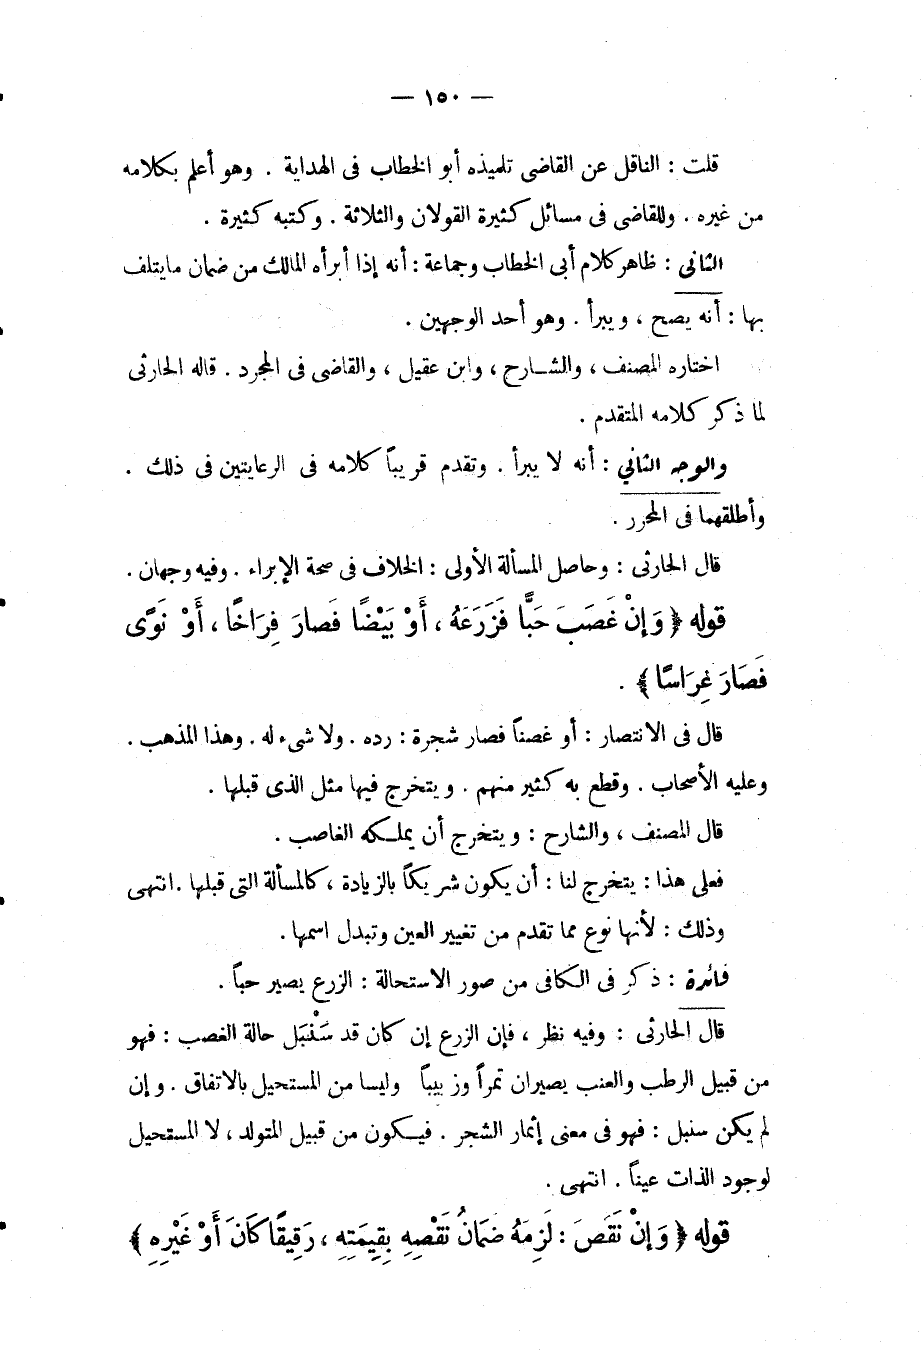 — ١٥٠ —
قلت : الناقل عن القاضى تلميذه أبو الخطاب فى الهداية . وهو أعلم بكلامه
من غيره . وللقاضى فى مسائل كثيرة القولان والثلاثة . وكتبه كثيرة .
الثانى : ظاهر كلام أبى الخطاب وجماعة : أنه إذا أبرأه المالك من ضمان مايتلف
بها : أنه يصح ، ويبرأ . وهو أحد الوجهين .
اختاره المصنف ، والشارح ، وابن عقيل ، والقاضى فى المجرد . قاله الحارثى
لما ذكر كلامه المتقدم .
والوجه الثانى : أنه لا يبرأ . وتقدم قريباً كلامه فى الرعايتين فى ذلك .
وأطلقهما فى المحرر .
قال الحارثى : وحاصل المسألة الأولى : الخلاف فى صحة الإبراء . وفيه وجهان .
قوله ﴿ وَإِنْ غَصَبَ حَبًّا فَزَرَعَهُ ، أَوْ بَيْضًا فَصارَ فِرَاخًا ، أَوْ نَوًى
فَصَارَ غِرَاسًا ﴾ .
قال فى الانتصار : أو غصناً فصار شجرة : رده . ولا شىء له . وهذا المذهب .
وعليه الأصحاب . وقطع به كثير منهم . ويتخرج فيها مثل الذى قبلها .
قال المصنف ، والشارح : ويتخرج أن يملكه الغاصب .
فعلى هذا : يتخرج لنا : أن يكون شريكاً بالزيادة ، كالمسألة التى قبلها . انتهى
وذلك : لأنها نوع مما تقدم من تغيير العين وتبدل اسمها .
فائدة : ذكر فى الكافى من صور الاستحالة : الزرع يصير حباً .
قال الحارثى : وفيه نظر ، فإن الزرع إن كان قد سَنْبَل حالة الغصب : فهو
من قبيل الرطب والعنب يصيران تمراً وزبيباً وليسا من المستحيل بالاتفاق . وإن
لم يكن سنبل : فهو فى معنى إثمار الشجر . فيكون من قبيل المتولد ، لا المستحيل
لوجود الذات عيناً . انتهى .
قوله ﴿ وَإِنْ نَقَصَ : لَزِمَهُ ضَمَانُ نَقْصِهِ بِقِيمَتِهِ ، رَقِيقًا كَانَ أَوْ غَيْرِهِ ﴾